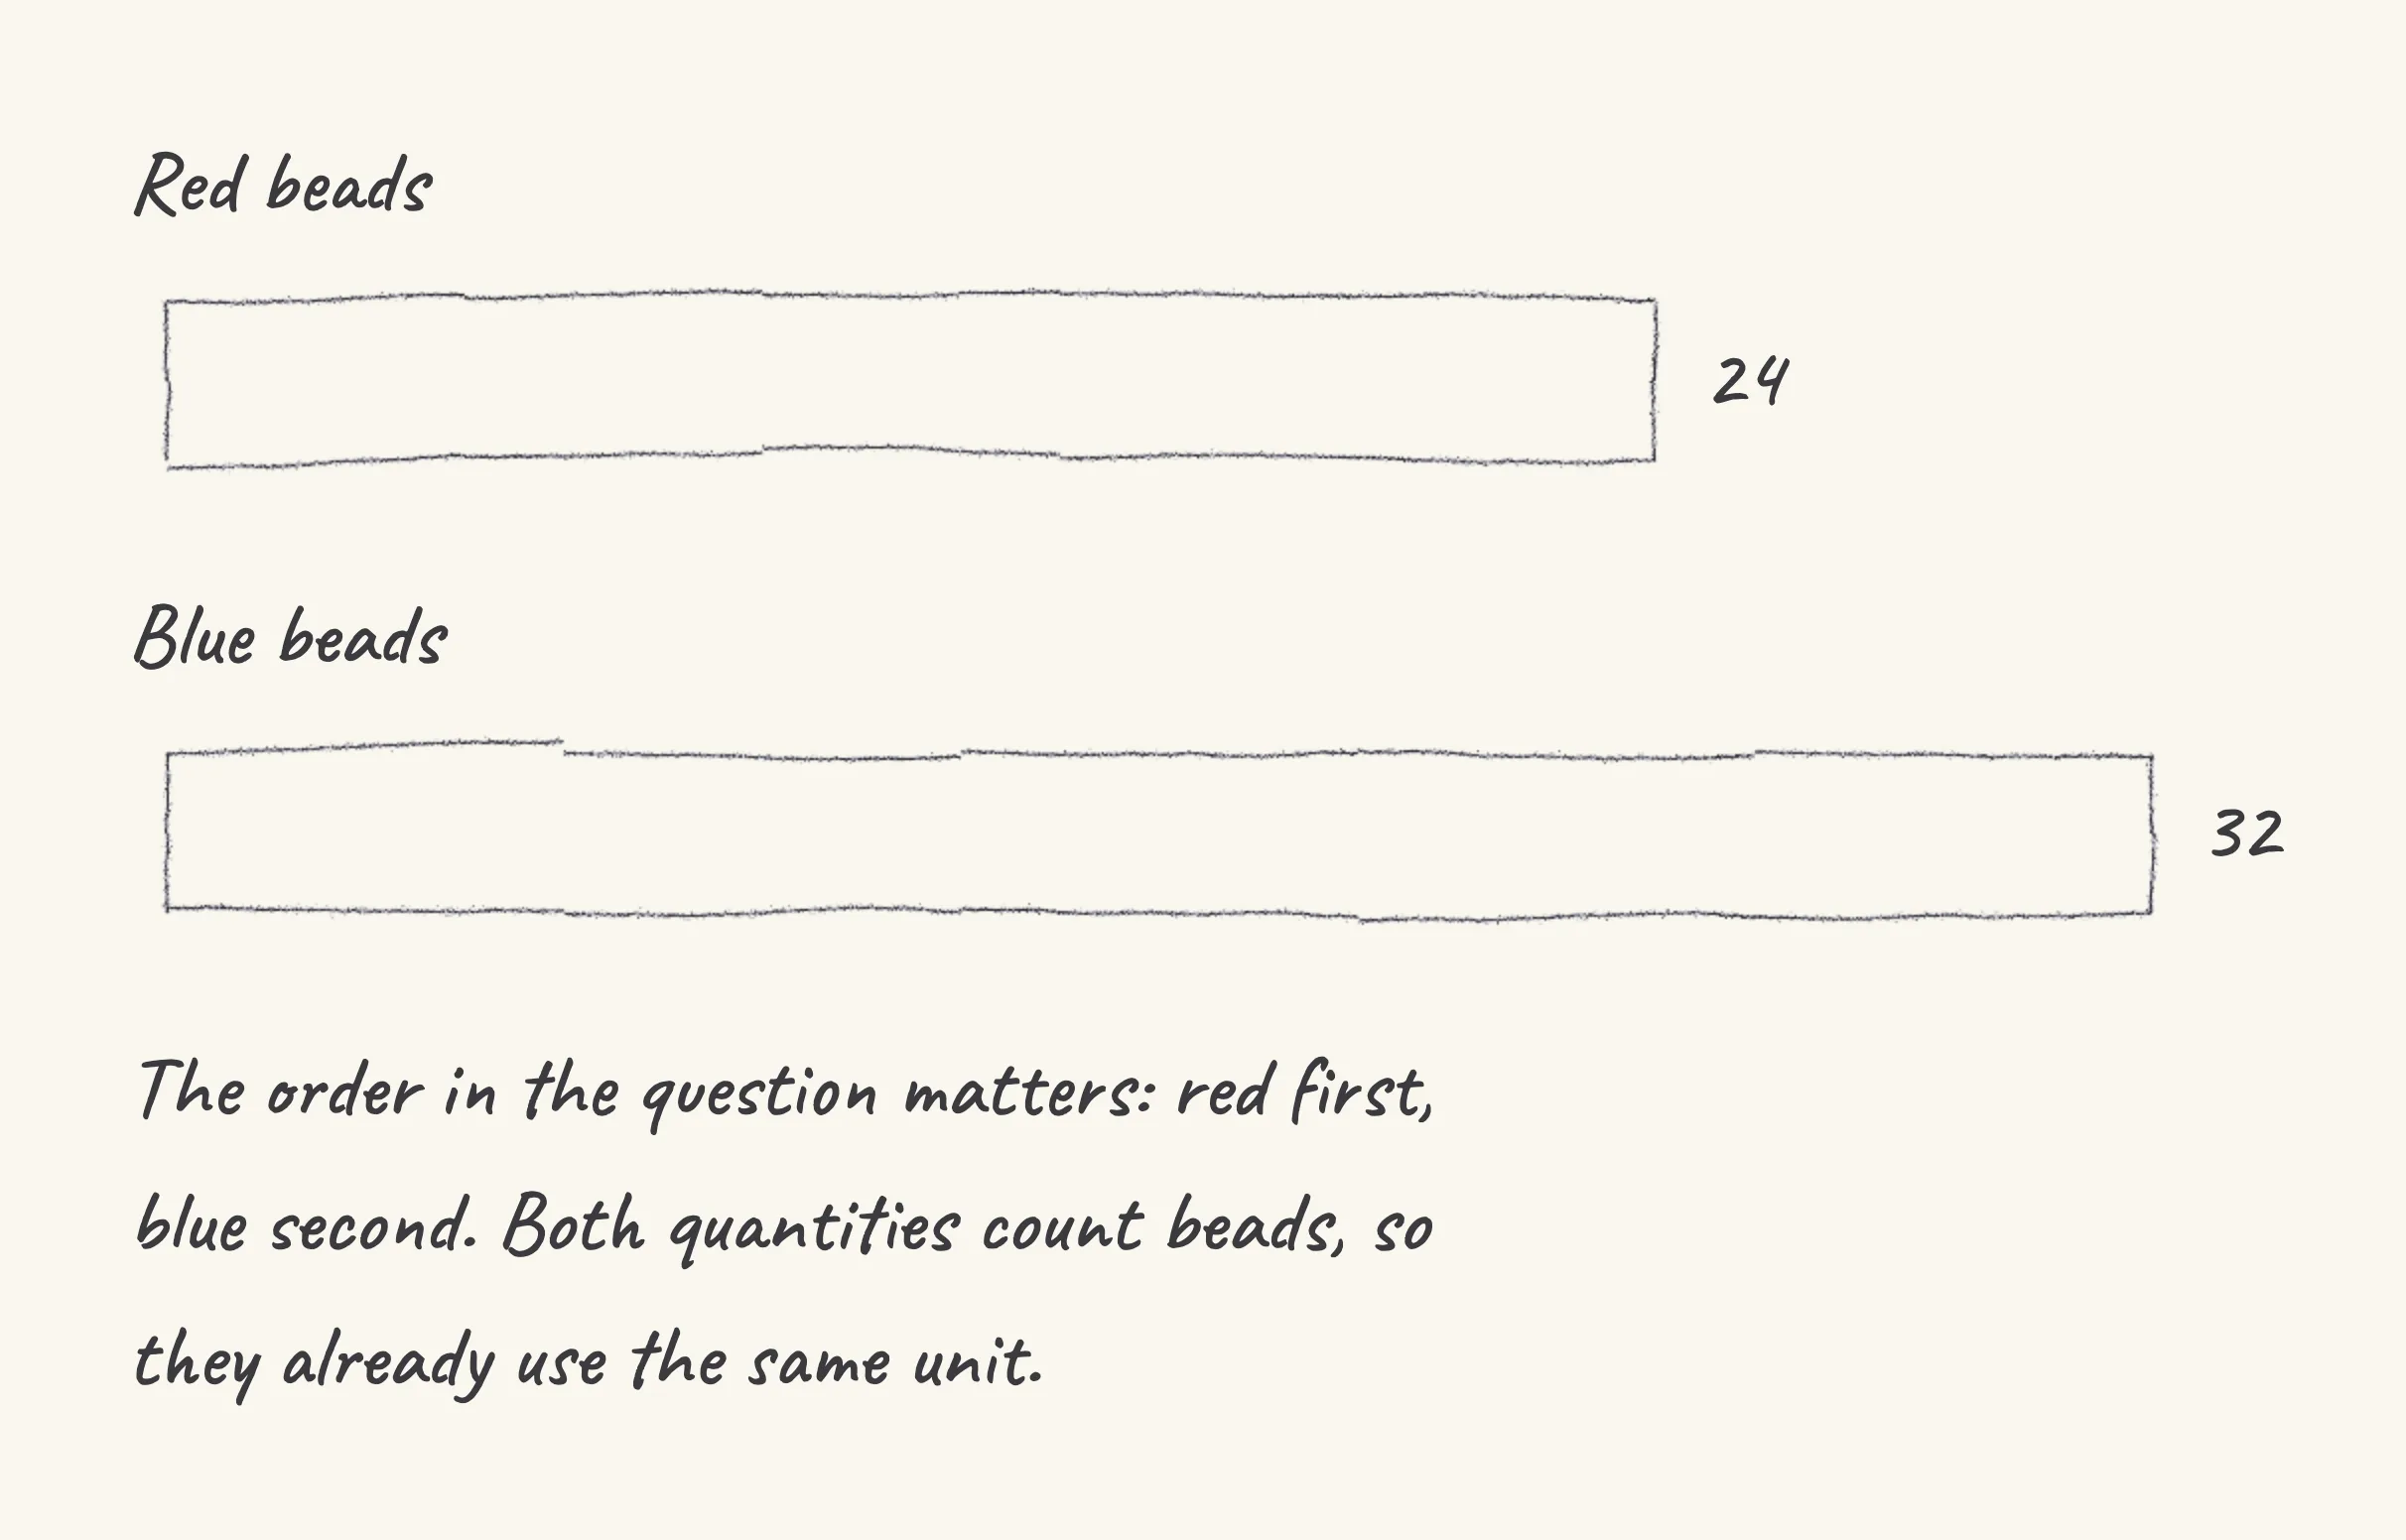 Red beads
24
Blue beads
32
The order in the question matters: red first,
blue second. Both quantities count beads, so
they already use the same unit.